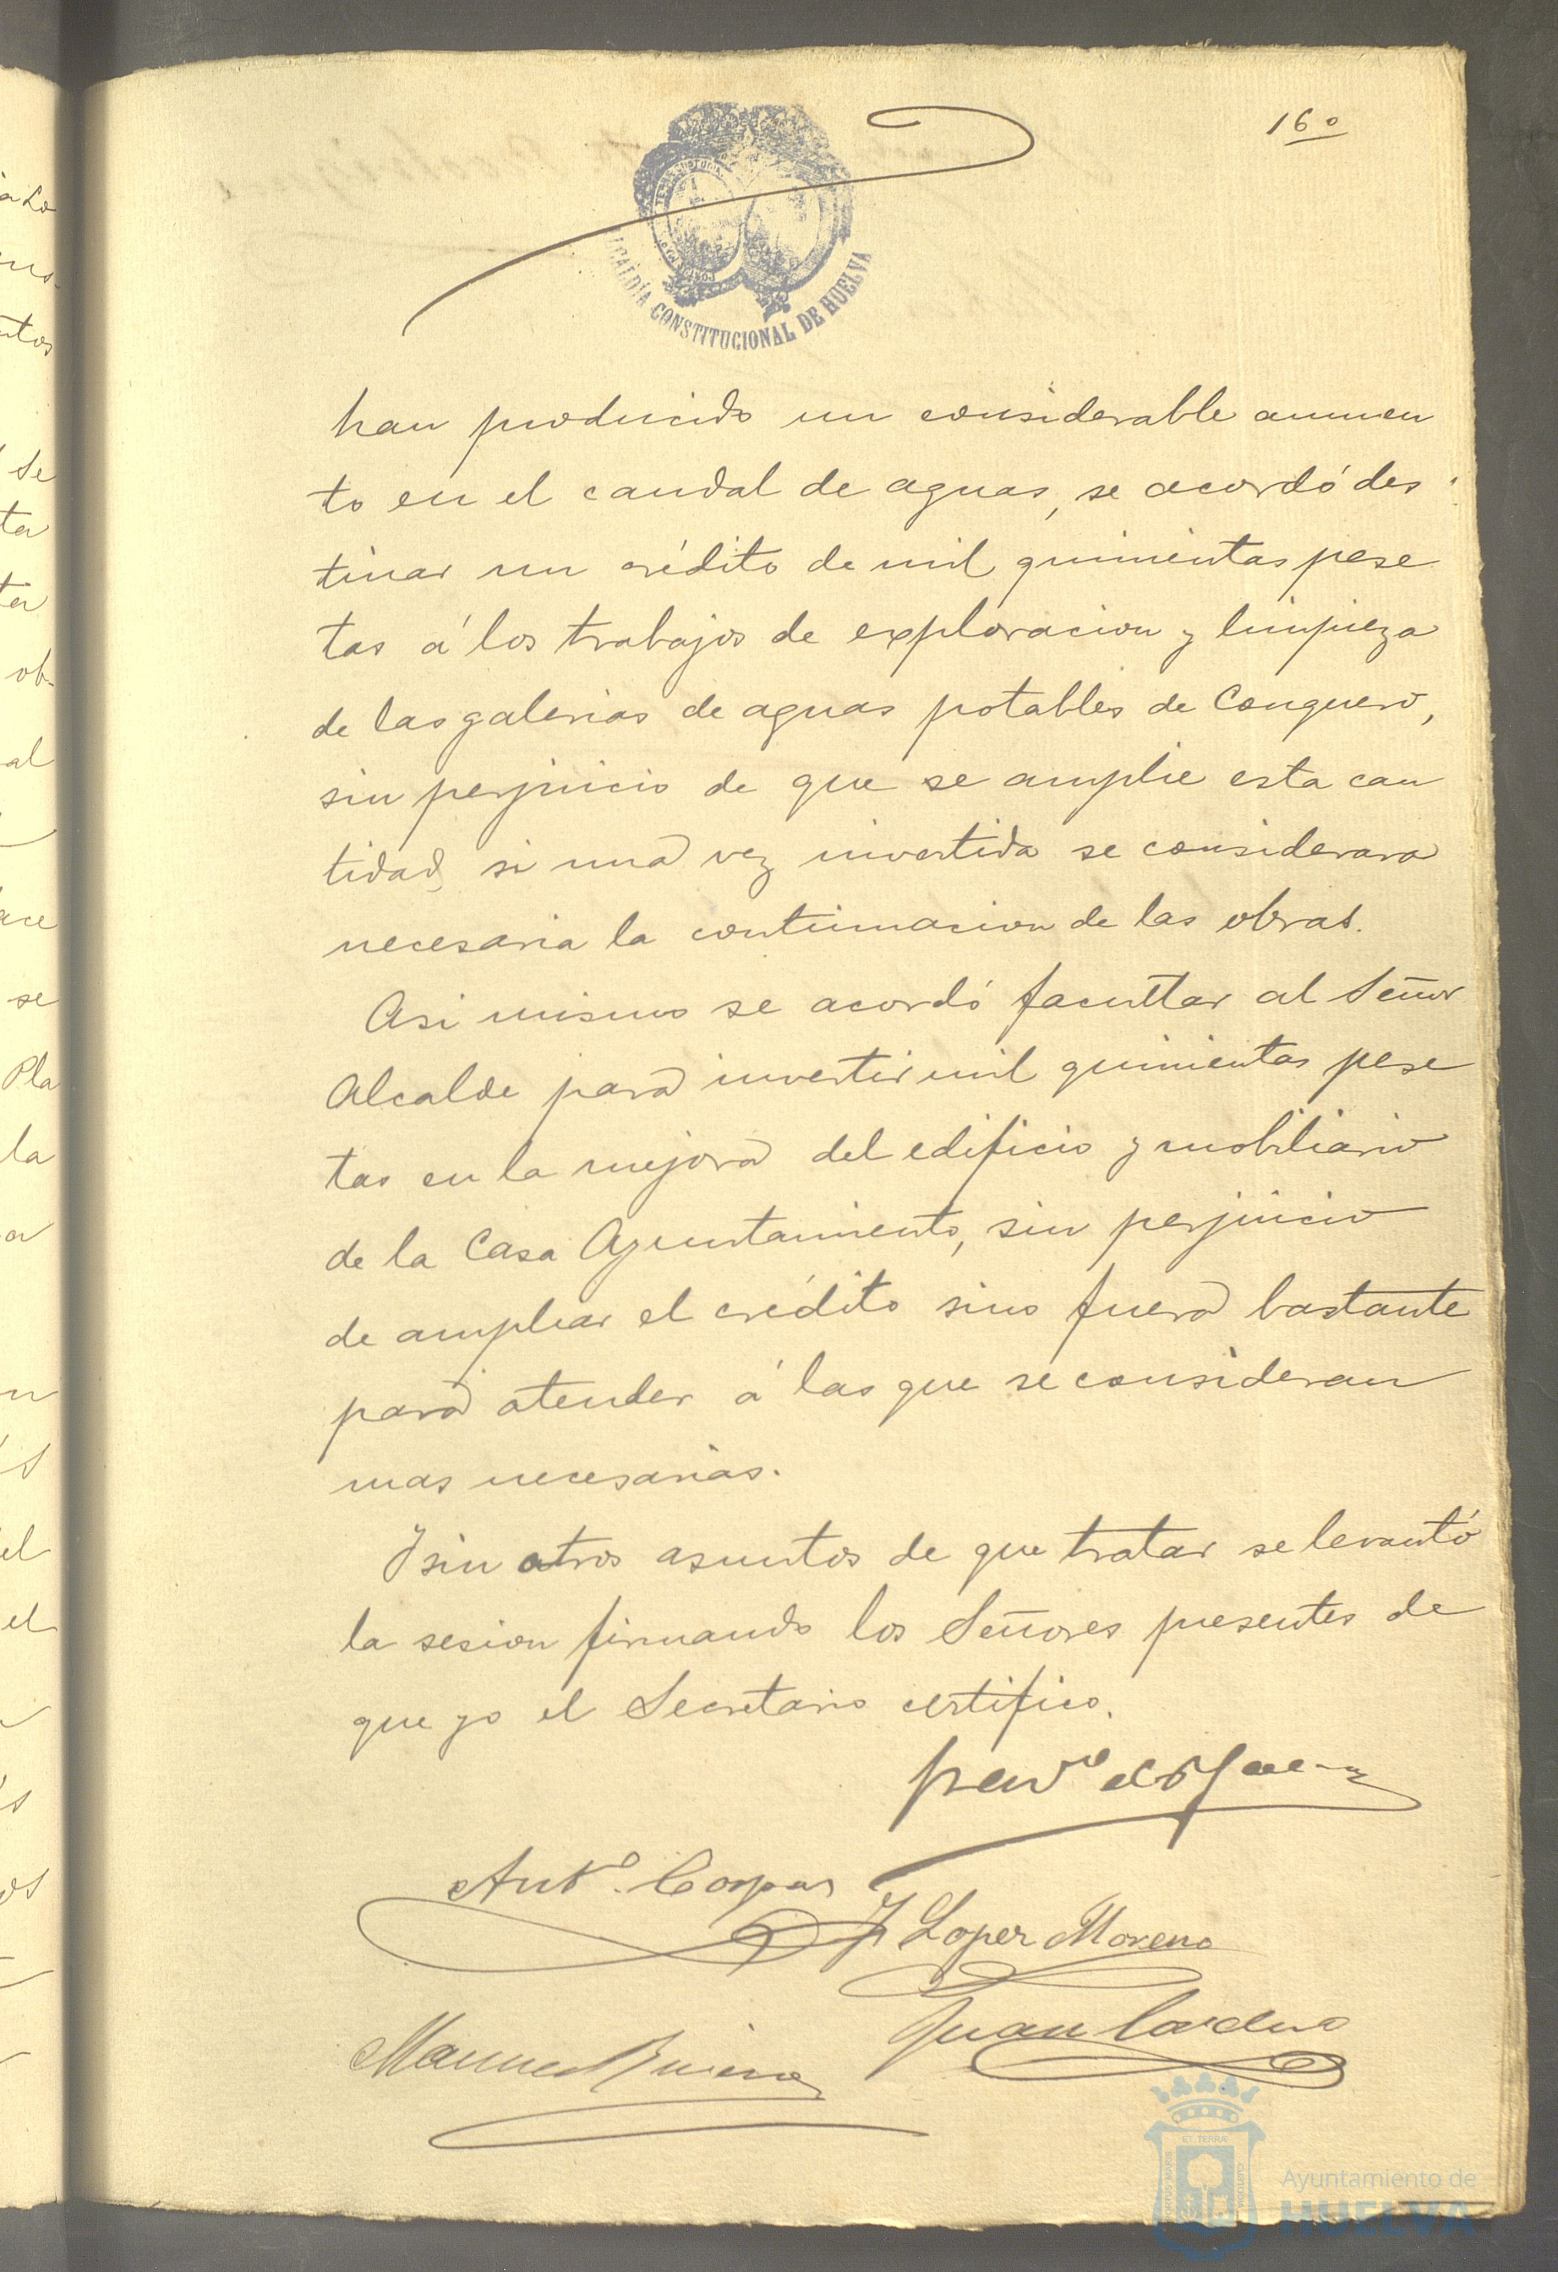 16º
ALCALDÍA CONSTITUCIONAL DE HUELVA
han producido un considerable aumen
to en el caudal de aguas, se acordó des
tinar un crédito de mil quinientas pese
tas á los trabajos de exploracion y limpieza
de las galerias de aguas potables de Conquero,
sin perjuicio de que se amplie esta can
tidad, si una vez invertida se considerara
necesaria la continuacion de las obras.
Asi mismo se acordó facultar al Señor
Alcalde para invertir mil quinientas pese
tas en la mejora del edificio y mobiliario
de la Casa Ayuntamiento, sin perjuicio
de ampliar el crédito sino fuera bastante
para atender á las que se consideran
mas necesarias.
Y sin otros asuntos de que tratar se levantó
la sesion firmando los Señores presentes de
que yo el Secretario certifico.
Antº. 
J Lopez Moreno
Juan
Manuel
ET TERRÆ
Ayuntamiento de
HUELVA